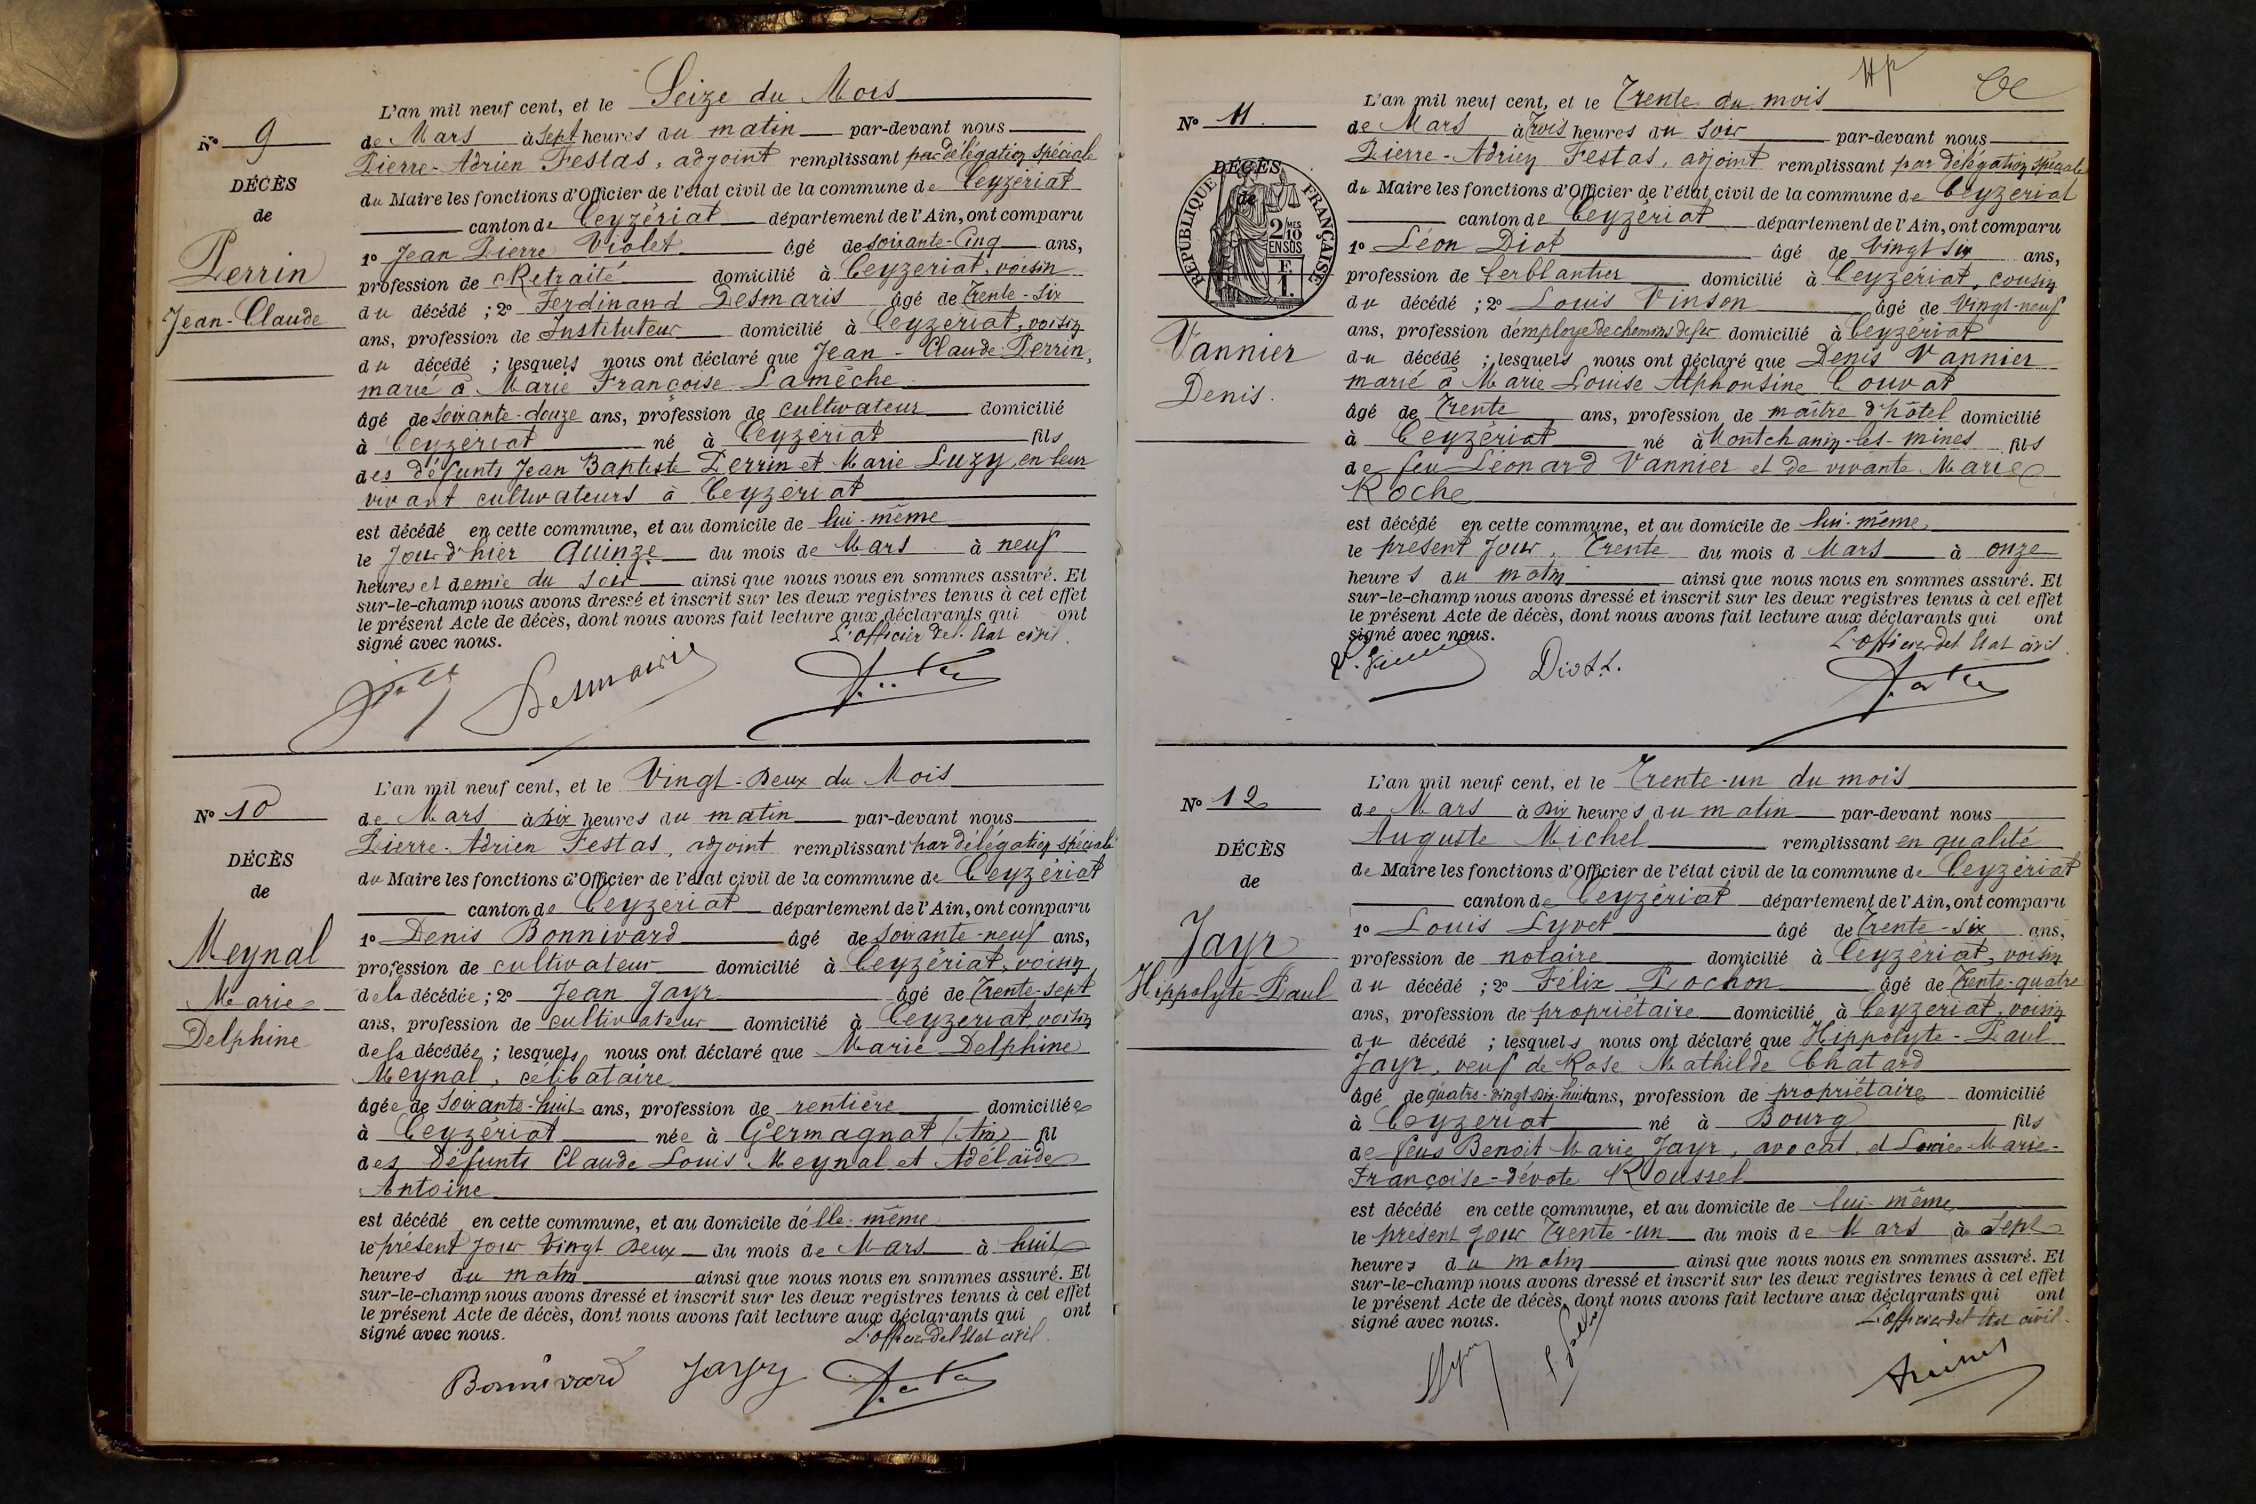 L'an mil neuf cent, et le Seize du Mois
N° 9
de Mars à Sept heures du matin par-devant nous
Pierre-Adrien Festas, adjoint remplissant par délégation spéciale
DÉCÈS
du Maire les fonctions d'Officier de l'état civil de la commune de Ceyzériat
de
canton de Ceyzériat département de l'Ain, ont comparu
Perrin
Jean-Claude
1° Jean Pierre Violet âgé de soixante-Cinq ans,
profession de Retraité domicilié à Ceyzeriat, voisin
du décédé ; 2° Ferdinand Desmaris âgé de Trente-Six
ans, profession de Instituteur domicilié à Ceyzeriat, voisin
du décédé ; lesquels nous ont déclaré que Jean-Claude Perrin,
marié à Marie Françoise Lamèche
âgé de soixante-douze ans, profession de cultivateur domicilié
à Ceyzeriat né à Ceyzériat fils
des défunts Jean Baptiste Perrin et Marie Luzy, en leur
vivant cultivateurs à Ceyzériat
est décédé en cette commune, et au domicile de lui-même
le Jour d'hier Quinze du mois de Mars à neuf
heures et demie du soir ainsi que nous nous en sommes assuré. Et
sur-le-champ nous avons dressé et inscrit sur les deux registres tenus à cet effet
le présent Acte de décès, dont nous avons fait lecture aux déclarants qui ont
signé avec nous.
L'officier del. Etat civil.
Desmaris
L'an mil neuf cent, et le Vingt-Deux du Mois
N° 10
de Mars à Dix heures du matin par-devant nous
Pierre-Adrien Festas, adjoint remplissant par délégation spéciale
DÉCÈS
du Maire les fonctions d'Officier de l'état civil de la commune de Ceyzériat
de
canton de Ceyzeriat département de l'Ain, ont comparu
Meynal
Marie
Delphine
1° Denis Bonnivard âgé de soixante-neuf ans,
profession de cultivateur domicilié à Ceyzériat, voisin
de la décédée ; 2° Jean Jayr âgé de Trente-sept
ans, profession de cultivateur domicilié à Ceyzeriat, voisin
de la décédée ; lesquels nous ont déclaré que Marie Delphine
Meynal, célibataire
âgée de soixante-huit ans, profession de rentière domiciliée
à Ceyzériat née à Germagnat (Ain) fil
des Défunts Claude Louis Meynal et Adélaïde
Antoine
est décédé en cette commune, et au domicile d'elle-même
le présent jour Vingt Deux du mois de Mars à huit
heures du matin ainsi que nous nous en sommes assuré. Et
sur-le-champ nous avons dressé et inscrit sur les deux registres tenus à cet effet
le présent Acte de décès, dont nous avons fait lecture aux déclarants qui ont
signé avec nous.
L'officier del Etat civil.
Bonnivard Jayr
L'an mil neuf cent, et le Trente du mois
N° 11
de Mars à Trois heures du soir par-devant nous
Pierre-Adrien Festas, adjoint remplissant par délégation spéciale
DÉCÈS
de
RÉPUBLIQUE FRANÇAISE
2/10 MES
EN SUS
F
1.
du Maire les fonctions d'Officier de l'état civil de la commune de Ceyzeriat
canton de Ceyzériat département de l'Ain, ont comparu
Vannier
Denis.
1° Léon Diot âgé de Vingt six ans,
profession de ferblantier domicilié à Ceyzériat, cousin
du décédé ; 2° Louis Vinson âgé de Vingt-neuf
ans, profession d'employé de chemins de fer domicilié à Ceyzériat
du décédé ; lesquels nous ont déclaré que Denis Vannier
marié à Marie Louise Alphonsine Couvat
âgé de Trente ans, profession de maître d'hôtel domicilié
à Ceyzériat né à Montchanin-les-mines fils
de feu Léonard Vannier et de vivante Marie
Roche
est décédé en cette commune, et au domicile de lui-même
le présent jour, Trente du mois d Mars à onze
heures du matin ainsi que nous nous en sommes assuré. Et
sur-le-champ nous avons dressé et inscrit sur les deux registres tenus à cet effet
le présent Acte de décès, dont nous avons fait lecture aux déclarants qui ont
signé avec nous.
L'officier del Etat civil.
Diot L.
L'an mil neuf cent, et le Trente-un du mois
N° 12
de Mars à Dix heures du matin par-devant nous
Auguste Michel remplissant en qualité
DÉCÈS
de Maire les fonctions d'Officier de l'état civil de la commune de Ceyzériat
de
canton de Ceyzériat département de l'Ain, ont comparu
Jayr
Hippolyte-Paul
1° Louis Lyvet âgé de Trente-six ans,
profession de notaire domicilié à Ceyzériat, voisin
du décédé ; 2° Félix Pochon âgé de Trente-quatre
ans, profession de propriétaire domicilié à Ceyzeriat, voisin
du décédé ; lesquels nous ont déclaré que Hippolyte-Paul
Jayr, veuf de Rose Mathilde Chatard
âgé de quatre-vingt dix-huit ans, profession de propriétaire domicilié
à Ceyzeriat né à Bourg fils
de feus Benoit Marie Jayr, avocat, et Louise Marie-
Françoise-dévote Roussel
est décédé en cette commune, et au domicile de lui-même
le présent jour Trente-un du mois de Mars à Sept
heures du matin ainsi que nous nous en sommes assuré. Et
sur-le-champ nous avons dressé et inscrit sur les deux registres tenus à cet effet
le présent Acte de décès, dont nous avons fait lecture aux déclarants qui ont
signé avec nous.
L'officier del Etat civil.